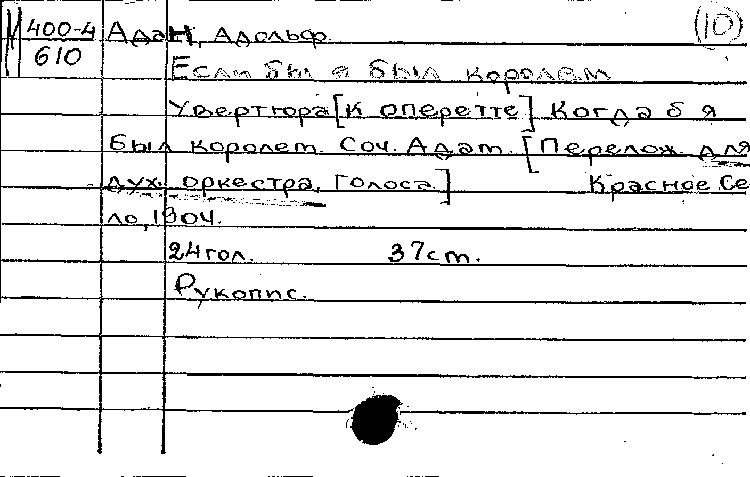 М 400-4 Адан, Адольф. (10)
610
Если бы я был королем
Увертюра [к оперетте] Когда б я
был королем. Соч. Адам. [Перелож. для
дух. оркестра. Голоса.] Красное Се
ло, 1904.
24 гол. 37 cm.
Рукопис.